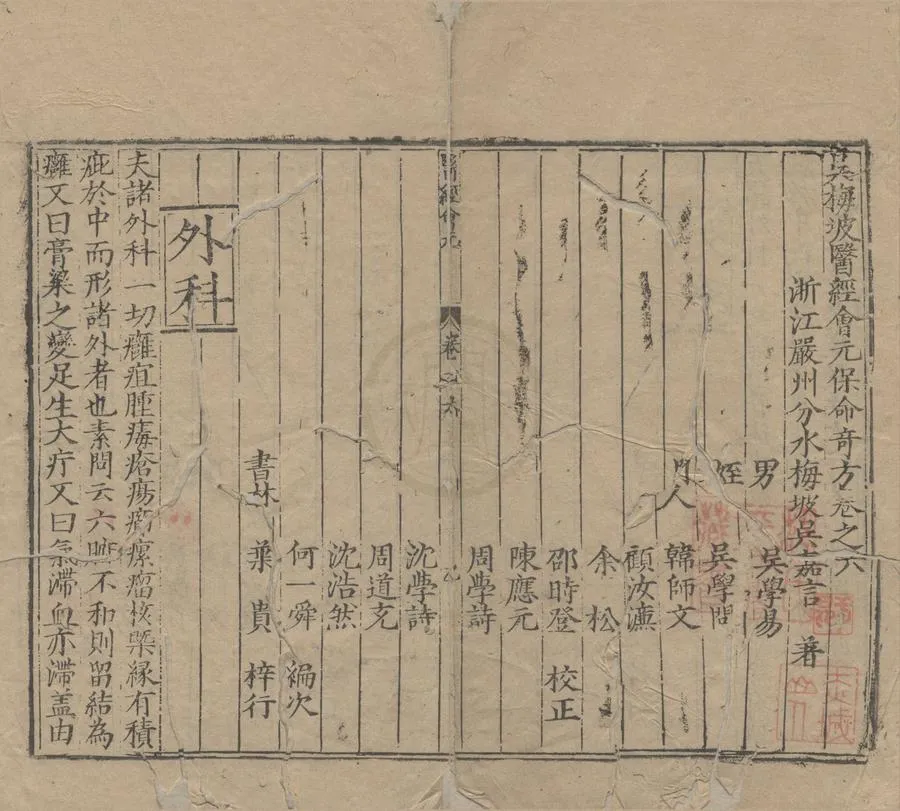 吳梅坡醫經會元保命奇方卷之六
浙江嚴州分水梅坡吳嘉言 著
男 吳學易
姪 吳學問
門人 韓師文
顧汝濂
余松
邵時登 校正
陳應元
周學詩
醫經會元 卷之六
沈學詩
周道充
沈浩然
何一舜 編次
書林 葉貴 梓行
外科
夫諸外科一切癰疽腫毒瘡瘍癤瘰瘤核槩緣有積
疵於中而形諸外者也素問云六腑不和則留結為
癰又曰膏梁之變足生大疔又曰氣滯血亦滯盖由